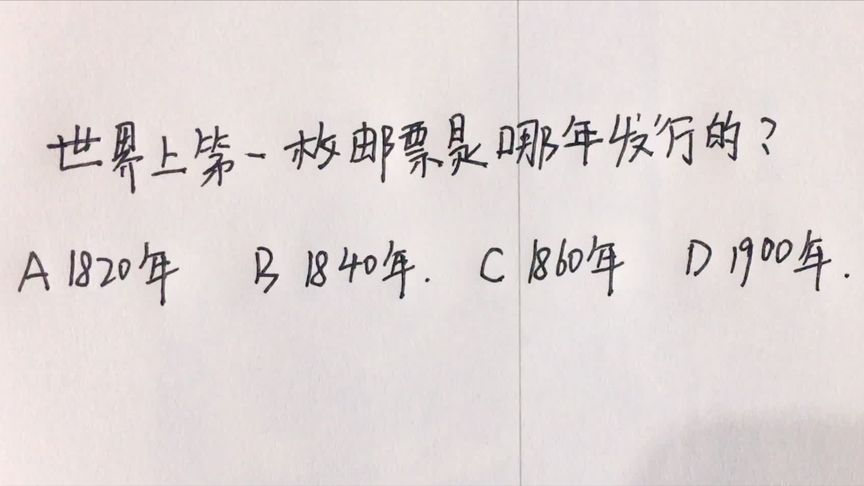 世界上第一枚邮票是哪年发行的?
A 1820年 B 1840年. C 1860年 D 1900年.